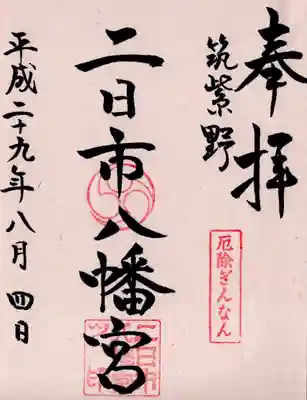 奉拝
筑紫野
厄除ぎんなん
二日市八幡宮
平成二十九年八月四日